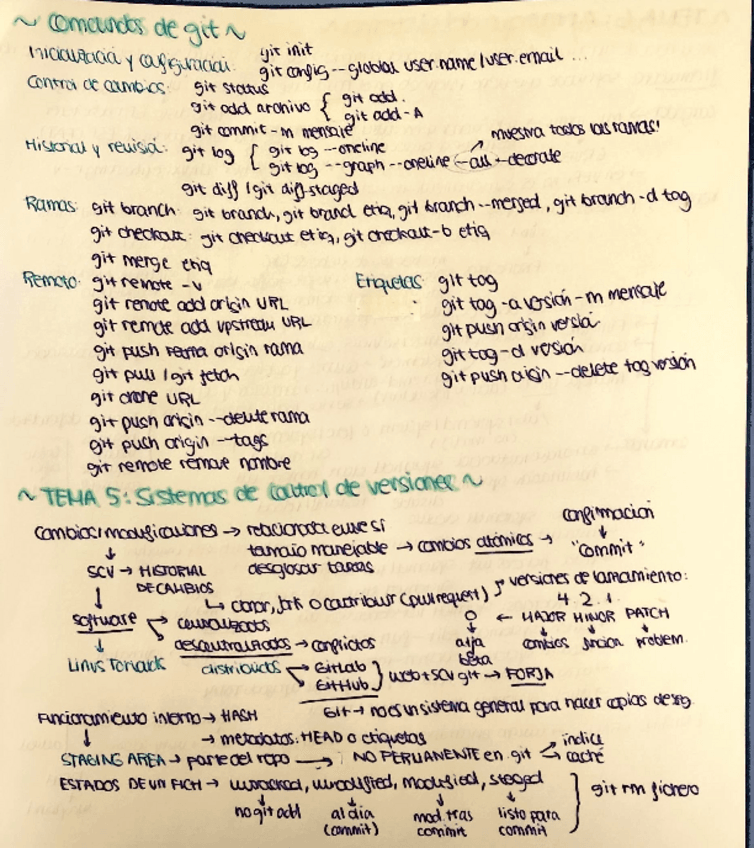 ~ Comandos de git ~
Inicialización y configuración: git init
git config --global user.name/user.email ...
Control de cambios: git status
git add archivo { git add .
git add -A
git commit -m mensaje
muestra todas las ramas!
Historial y revisión: git log { git log --oneline
git log --graph --oneline --all --decorate
git diff / git diff-staged
Ramas: git branch: git branch, git branch etiq, git branch --merged, git branch -d tag
git checkout: git checkout etiq, git checkout -b etiq
git merge etiq
Remoto: git remote -v
git remote add origin URL
git remote add upstream URL
git push origin rama
git pull / git fetch
git clone URL
git push origin --delete rama
git push origin --tags
git remote remove nombre
Etiquetas: git tag
git tag -a versión -m mensaje
git push origin versión
git tag -d versión
git push origin --delete tag versión
~ TEMA 5: Sistemas de control de versiones ~
Cambios/modificaciones → relacionada entre sí
tamaño manejable → cambios atómicos → "commit"
confirmación
desglosar tareas
SCV → HISTORIAL
DE CAMBIOS
↳ clonar, fork o contribuir (pull request)
versiones de lanzamiento:
4.2.1.
software
centralizados
0 ← MAJOR MINOR PATCH
descentralizados → conflictos
alfa
beta
cambios función problem.
Linus Torvalds
distribuidos
GitLab
GitHub } web + SCV git → FORJA
Git → no es un sistema general para hacer copias de seg.
Funcionamiento interno → HASH
→ metadatos: HEAD o etiquetas
STAGING AREA → parte del repo → NO PERMANENTE en git
índice
caché
ESTADOS DE UN FICH → untracked, unmodified, modified, staged
no git add
al día
(commit)
mod. tras
commit
listo para
commit
} git rm fichero